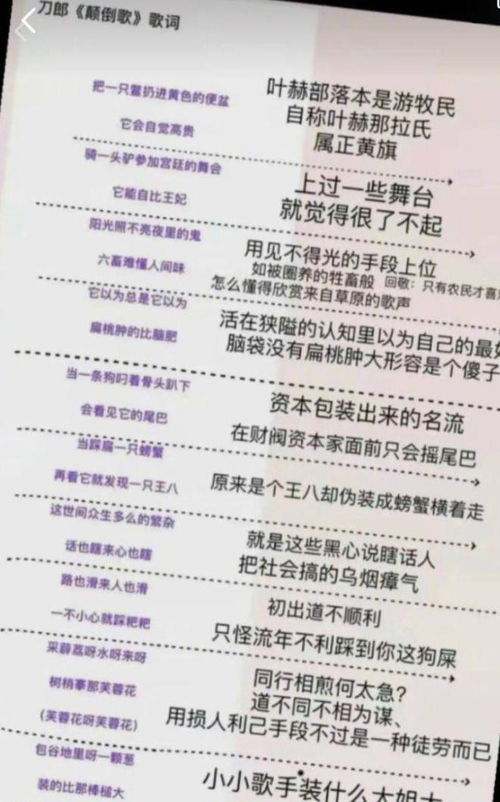 刀郎《颠倒歌》歌词
把一只鳖扔进黄色的便盆
它会自觉高贵
叶赫部落本是游牧民
自称叶赫那拉氏
属正黄旗
骑一头驴参加宫廷的舞会
它能自比王妃
上过一些舞台
就觉得很了不起
阳光照不亮夜里的鬼
六畜难懂人间味
用见不得光的手段上位
如被圈养的牲畜般 回敬：只有农民才喜
怎么懂得欣赏来自草原的歌声
它以为总是它以为
扁桃肿的比脑肥
活在狭隘的认知里以为自己的最好
脑袋没有扁桃肿大形容是个傻子
当一条狗叼着骨头趴下
会看见它的尾巴
资本包装出来的名流
在财阀资本家面前只会摇尾巴
当踩扁一只螃蟹
再看它就发现一只王八
原来是个王八却伪装成螃蟹横着走
这世间众生多么的繁杂
话也瞎来心也瞎
就是这些黑心说瞎话人
把社会搞的乌烟瘴气
路也滑来人也滑
一不小心就踩粑粑
初出道不顺利
只怪流年不利踩到你这狗屎
采薜荔呀水呀来呀
树梢搴那芙蓉花
(芙蓉花呀芙蓉花)
同行相煎何太急？
道不同不相为谋、
用损人利己手段不过是一种徒劳而已
包谷地里呀一颗葱
装的比那棒槌大
小小歌手装什么大姐大